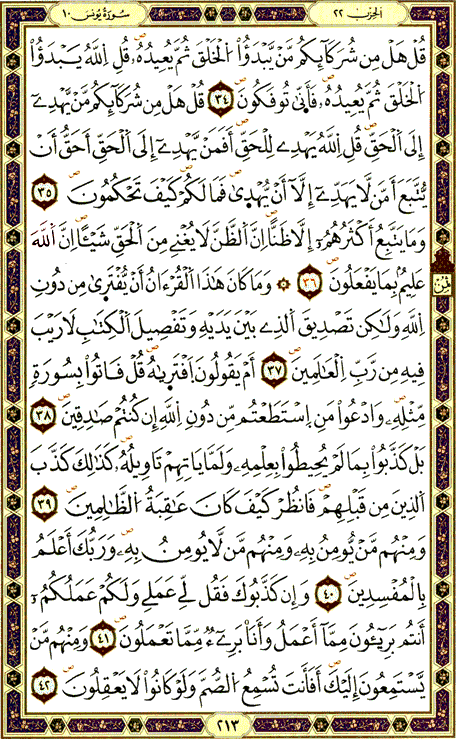 الحزب ٢٢
سورة يونس ١٠
قُلْ هَلْ مِن شُرَكَآئِكُم مَّنْ يَّبْدَؤُاْ اُ۬لْخَلْقَ ثُمَّ يُعِيدُهُۥۖ قُلِ اِ۬للَّهُ يَبْدَؤُاْ
اُ۬لْخَلْقَ ثُمَّ يُعِيدُهُۥۖ فَأَنّ۪يٰ تُوفَكُونَۖ ٣٤ قُلْ هَلْ مِن شُرَكَآئِكُم مَّنْ يَّهْدِےٓ
إِلَى اَ۬لْحَقِّۖ قُلِ اِ۬للَّهُ يَهْدِے لِلْحَقِّۖ أَفَمَنْ يَّهْدِےٓ إِلَى اَ۬لْحَقِّ أَحَقُّ أَنْ
يُّتَّبَعَ أَمَّن لَّا يَهَدِّےٓ إِلَّآ أَنْ يُّهْد۪يٰۖ فَمَا لَكُمْۖ كَيْفَ تَحْكُمُونَۖ ٣٥
وَمَا يَتَّبِعُ أَكْثَرُهُمُۥٓ إِلَّا ظَنّاًۖ اِنَّ اَ۬لظَّنَّ لَا يُغْنِے مِنَ اَ۬لْحَقِّ شَيْـٔاًۖ اِنَّ اَ۬للَّهَ
عَلِيمُۢ بِمَا يَفْعَلُونَۖ ٣٦ ۞ وَمَا كَانَ هَٰذَا اَ۬لْقُرْءَانُ أَنْ يُّفْتَر۪يٰ مِن دُونِ
اِ۬للَّهِ وَلَٰكِن تَصْدِيقَ اَ۬لذِے بَيْنَ يَدَيْهِ وَتَفْصِيلَ اَ۬لْكِتَٰبِ لَا رَيْبَ
فِيهِ مِن رَّبِّ اِ۬لْعَٰلَمِينَۖ ٣٧ أَمْ يَقُولُونَ اَ۪فْتَر۪يٰهُۖ قُلْ فَاتُواْ بِسُورَةٖ
مِّثْلِهِۦ وَادْعُواْ مَنِ اِ۪سْتَطَعْتُم مِّن دُونِ اِ۬للَّهِ إِن كُنتُمْ صَٰدِقِينَۖ ٣٨
بَلْ كَذَّبُواْ بِمَا لَمْ يُحِيطُواْ بِعِلْمِهِۦ وَلَمَّا يَاتِهِمْ تَاوِيلُهُۥۖ كَذَٰلِكَ كَذَّبَ
اَ۬لذِينَ مِن قَبْلِهِمْۖ فَانظُرْ كَيْفَ كَانَ عَٰقِبَةُ اُ۬لظَّٰلِمِينَۖ ٣٩
وَمِنْهُم مَّنْ يُّومِنُ بِهِۦ وَمِنْهُم مَّن لَّا يُومِنُ بِهِۦۖ وَرَبُّكَ أَعْلَمُ
بِالْمُفْسِدِينَۖ ٤٠ وَإِن كَذَّبُوكَ فَقُل لِّے عَمَلِے وَلَكُمْ عَمَلُكُمُۥٓ
أَنتُم بَرِيٓـُٔونَ مِمَّآ أَعْمَلُ وَأَنَا بَرِےٓءٞ مِّمَّا تَعْمَلُونَۖ ٤١ وَمِنْهُم مَّنْ
يَّسْتَمِعُونَ إِلَيْكَۖ أَفَأَنتَ تُسْمِعُ اُ۬لصُّمَّ وَلَوْ كَانُواْ لَا يَعْقِلُونَۖ ٤٢
ثمن
٢١٣